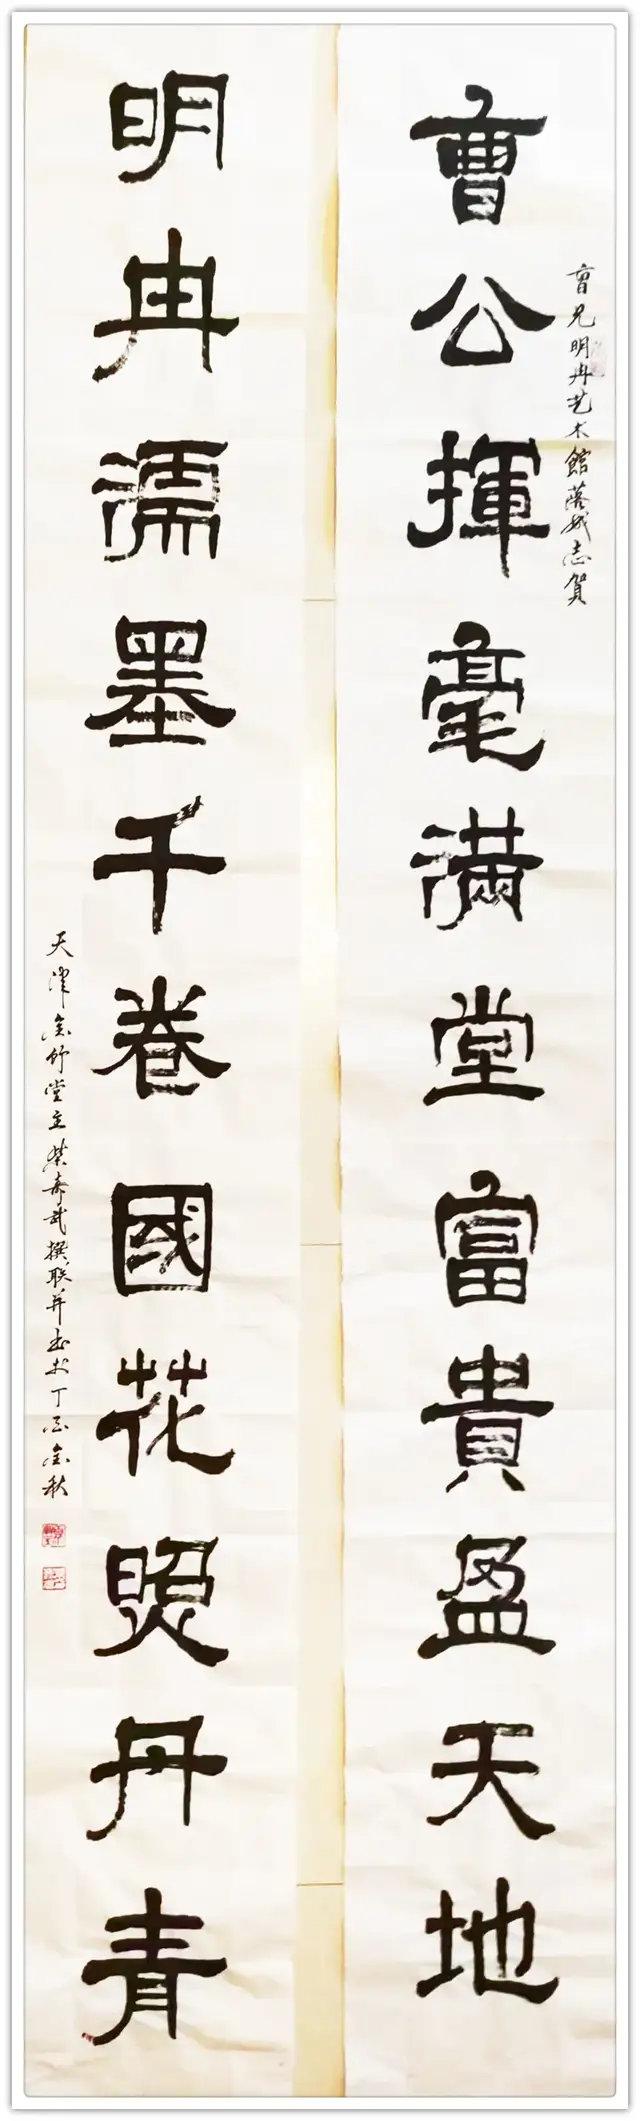 曹兄明冉艺术館落成志賀
曹公揮毫滿堂富貴盈天地
明冉濡墨千卷國花照丹青
天津金竹堂主武撰联并书于丁酉金秋